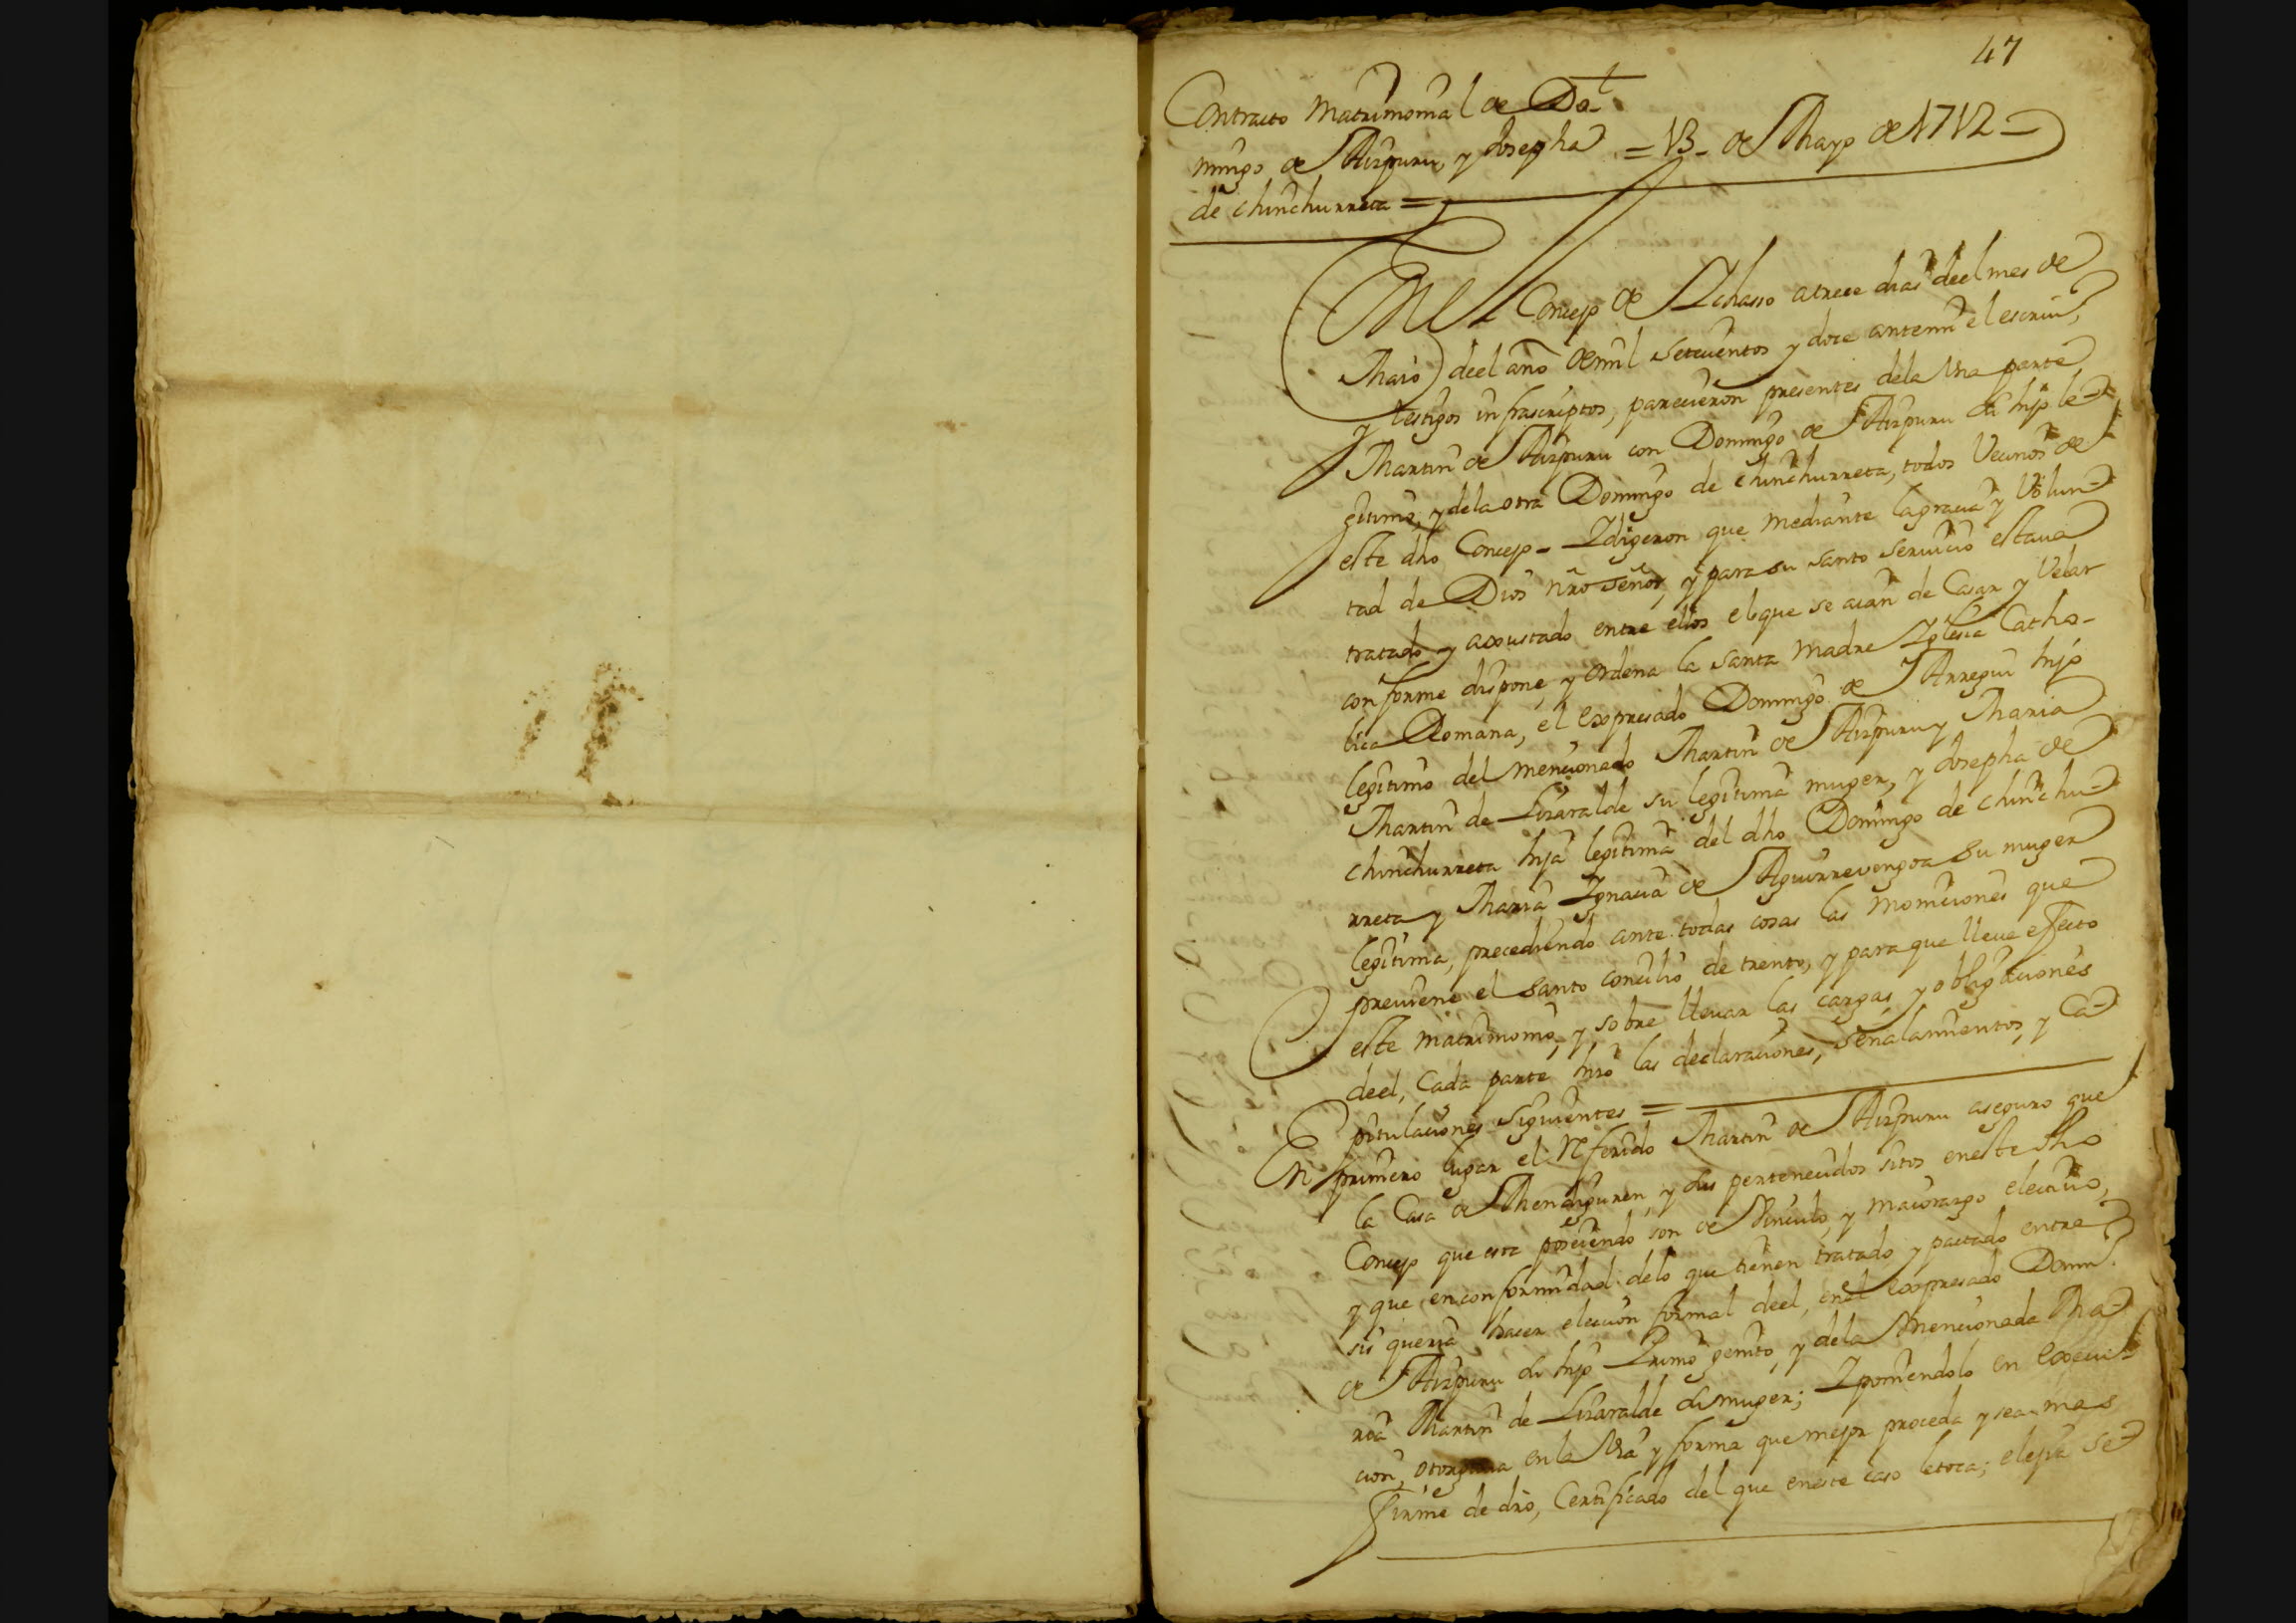 47
Contracto Matrimonial de Do-
mingo de Aizpuru, y Josepha = 13 - de Mayo de 1712 -
de chinchurreta =
En el Concejo de Ichasso a trece dias deel mes de
Maio deel año de mil setecientos y doce antemi el escriu.º
y testigos infrascriptos, parecieron presentes dela Una parte
Martin de Aizpuru con Domingo de Aizpuru su hijo le-
gitimo, y dela otra Domingo de chinchurreta, todos Vecinos de
este dho Concejo - Y digeron que mediante la gracia y Volun-
tad de Dios nro señor, y para su santo seruicio estaua
tratado y axustado entre ellos el que se aian de Casar y Velar
conforme dispone, y ordena la santa Madre Yglesia Catho-
lica Romana, el expresado Domingo de Arregui hijo
legitimo del mencionado Martin de Aizpuru y Maria
Martin de Lizaralde su legitima muger, y Josepha de
chinchurreta hija legitima del dho Domingo de chinchu-
rreta y Maria Ygnacia de Aguirrevengoa su muger
legitima, precediendo ante todas cosas las moniciones que
preuiene el santo concilio de trento, y para que lleue effecto
este matrimonio, y sobre lleuar las cargas, y obligaciones
deel, Cada parte hizo las declaraciones, señalamientos, y Ca-
pitulaciones siguientes =
En primero lugar el Referido Martin de Aizpuru aseguro que
la Casa de Mendiguren, y sus pertenecidos sitos eneste dho
Concejo que esta poseiendo son de Vinculo, y maiorazgo electiuo,
y que en conformidad delo que tienen tratado y pactado entre
sis queria hacer eleccion formal deel, enel expresado Domin.º
de Aizpuru su hijo Primo genito, y dela Mencionada Ma-
ria Martin de Lizaralde su muger; Y poniendolo en execu-
cion, en la Via y forma que mejor proceda y sea mas
firme de dro, Certificado del que eneste caso le toca; elejia se